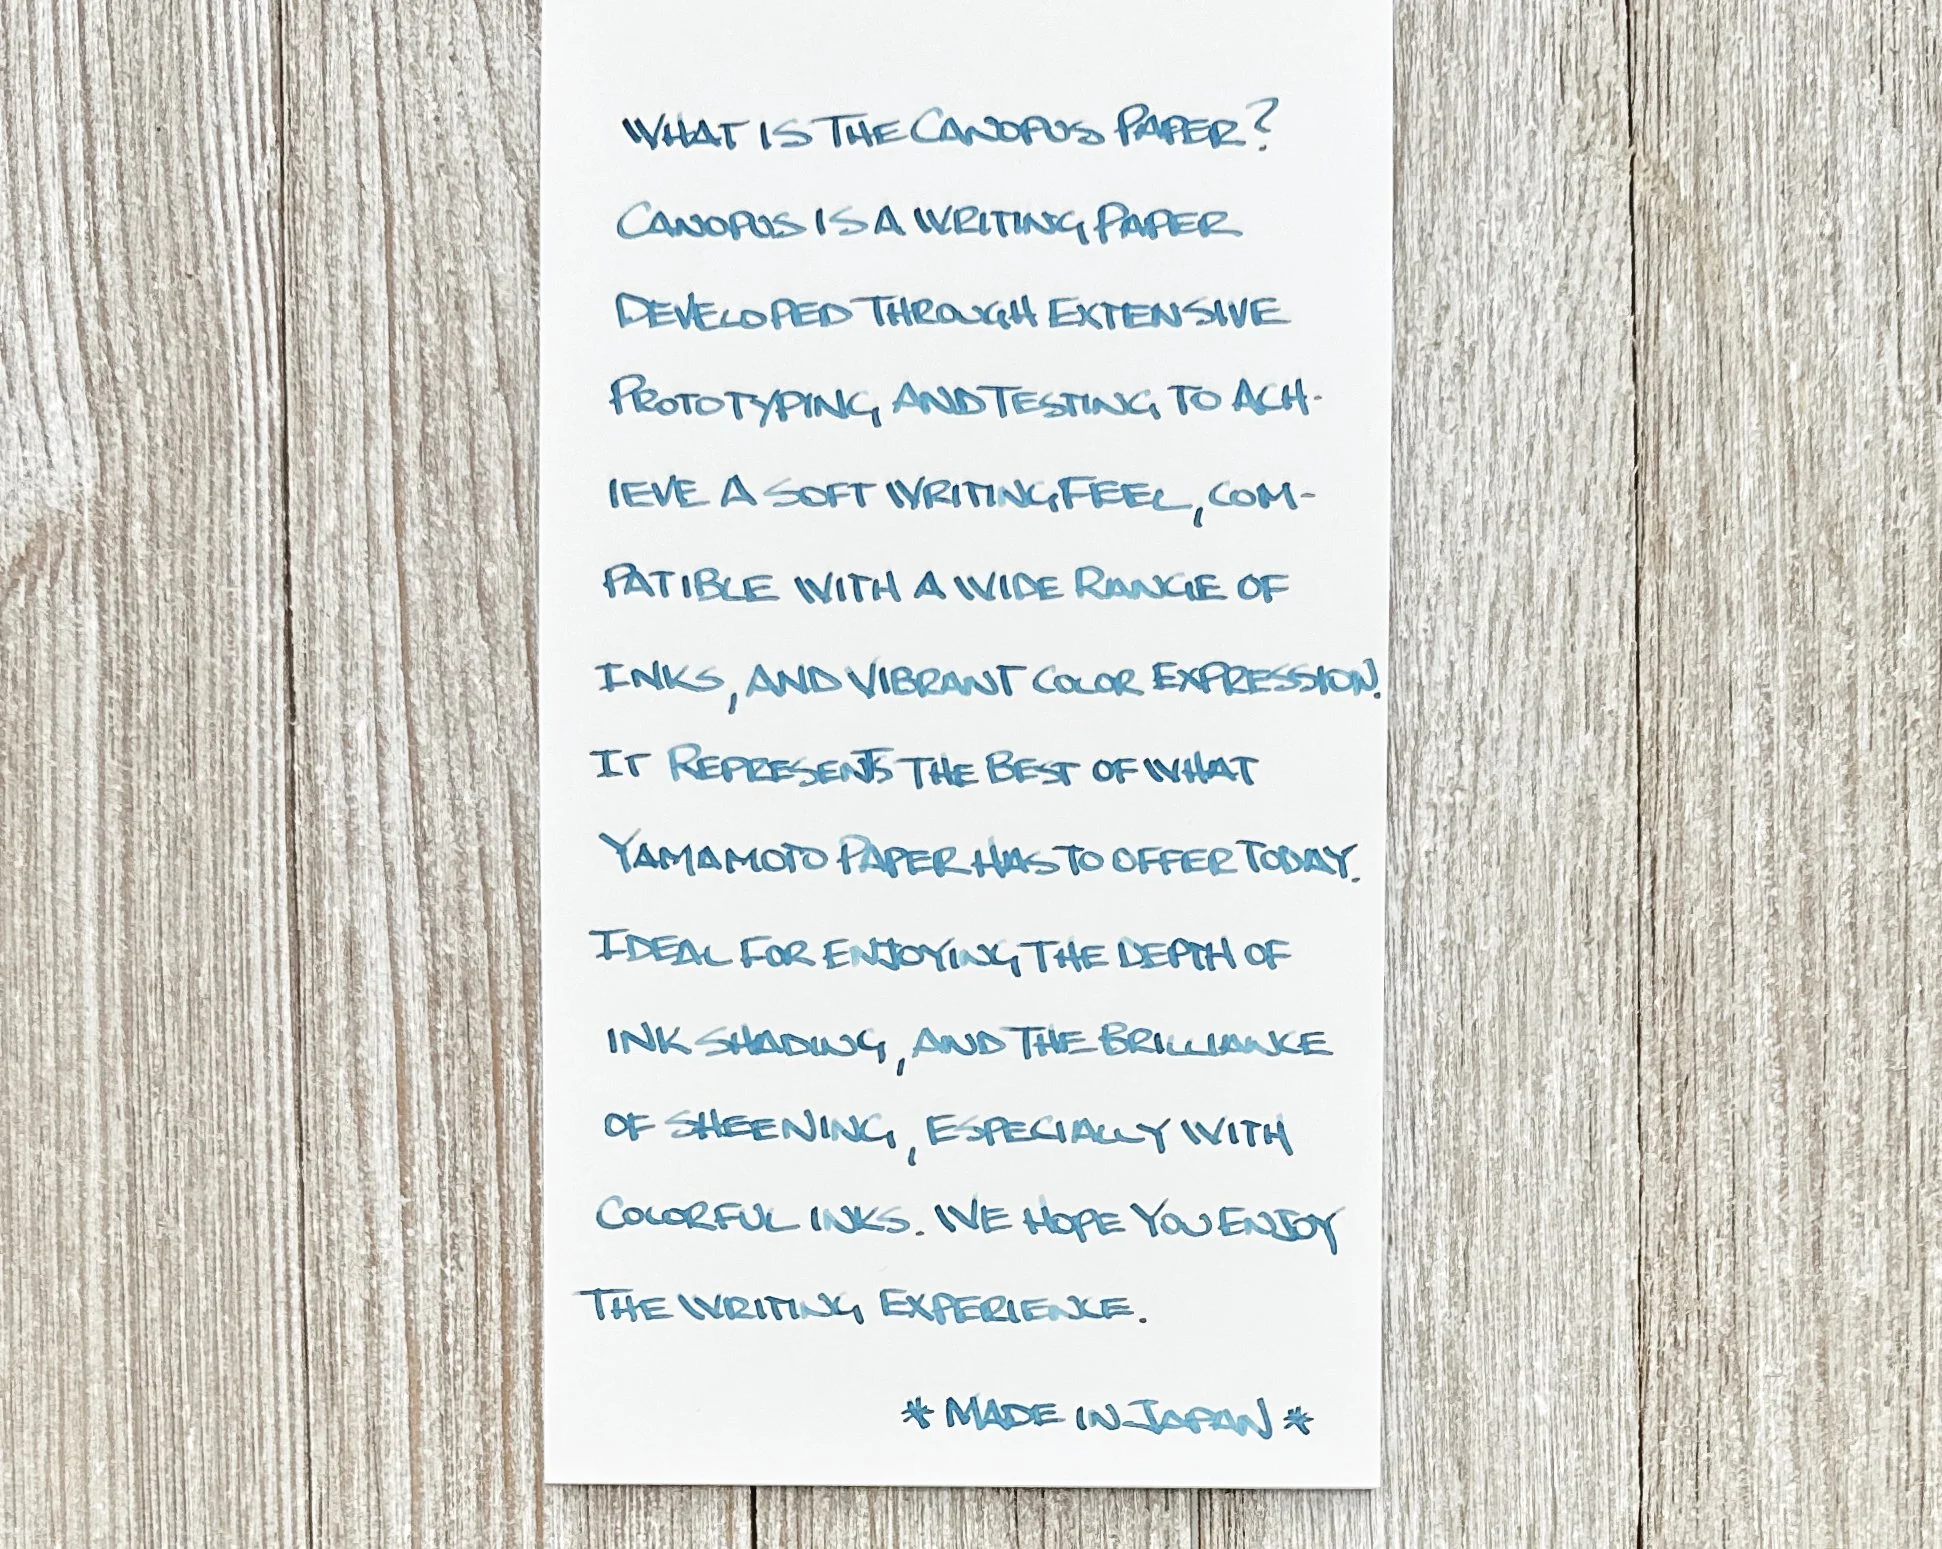 WHAT IS THE CANOPUS PAPER?
CANOPUS IS A WRITING PAPER
DEVELOPED THROUGH EXTENSIVE
PROTOTYPING AND TESTING TO ACH-
IEVE A SOFT WRITING FEEL, COM-
PATIBLE WITH A WIDE RANGE OF
INKS, AND VIBRANT COLOR EXPRESSION.
IT REPRESENTS THE BEST OF WHAT
YAMAMOTO PAPER HAS TO OFFER TODAY.
IDEAL FOR ENJOYING THE DEPTH OF
INK SHADING, AND THE BRILLIANCE
OF SHEENING, ESPECIALLY WITH
COLORFUL INKS. WE HOPE YOU ENJOY
THE WRITING EXPERIENCE.
* MADE IN JAPAN *